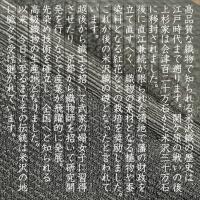 高品質な織物で知られる米沢織の歴史は
江戸時代まで遡ります。関ヶ原の戦いの後
上杉家は会津百二十万石から米沢三十万石
に移封されました。
後に直江兼続は限られた領地で藩の財政を
立て直すべく、織物の素材となる植物や事
染料となる紅花などの栽培を奨励しました。
これが後の米沢織の礎となったと言われて
います。
越後から職工を招いて武家の婦女子に習得
させたり、京都から織物師を招いて研究開
発を行い、一大産業が飛躍的に発展。
先染め技術を確立し、全国へと知られる
高級織物の生産地となりました。
以来、今日に至るまでその伝統は米沢の地
に脈々と受け継がれています。